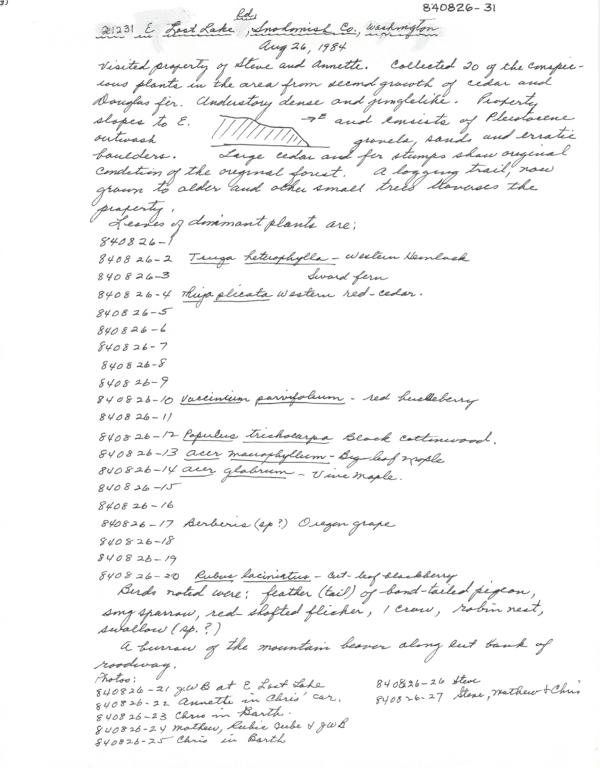 840826-31
21231 E Lost Lake Rd., Snohomish Co., Washington
Aug 26, 1984
Visited property of Steve and Annette. Collected 20 of the conspic-
ious plants in the area from second growth of cedar and
Douglas fir. Understory dense and junglelike. Property
slopes to E. → E and consists of Pleistocene
outwash gravels, sands and erratic
boulders. Large cedar and fir stumps show original
condition of the original forest. A logging trail, now
grown to alder and other small trees traverses the
property.
Leaves of dominant plants are:
840826-1
840826-2 Tsuga heterophylla - Western Hemlock
840826-3 Sword fern
840826-4 Thuja plicata Western red-cedar.
840826-5
840826-6
840826-7
840826-8
840826-9
840826-10 Vaccinium parvifolium - red huckleberry
840826-11
840826-12 Populus trichocarpa Black cottonwood.
840826-13 acer macrophyllum - Big leaf maple
840826-14 acer glabrum - Vine maple.
840826-15
840826-16
840826-17 Berberis (sp?) Oregon grape
840826-18
840826-19
840826-20 Rubus laciniatus - Cut-leaf blackberry
Birds noted were: feather (tail) of band-tailed pigeon,
song sparrow, red-shafted flicker, 1 crow, robin nest,
swallow (sp.?)
A burrow of the mountain beaver along cut bank of
roadway.
Photos:
840826-21 JWB at E Lost Lake
840826-22 Annette in Chris' car.
840826-23 Chris in Barth.
840826-24 Mathew, Rubic Cube & JWB
840826-25 Chris in Barth
840826-26 Steve
840826-27 Steve, Mathew & Chris